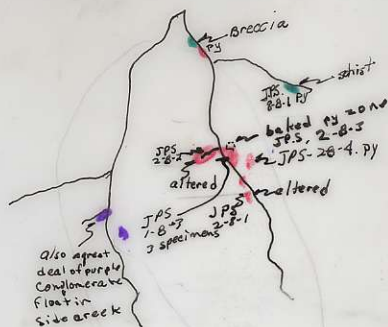 Breccia
py
schist
JPS
8-8-1 Py
baked py zone
JPS, 2-8-3
JPS
2-8-2
JPS-28-4. Py
altered
altered
JPS
1-8-3
3 specimens
JPS
2-8-1
also agreat
deal of purple
Conglomerate
float in
side creek